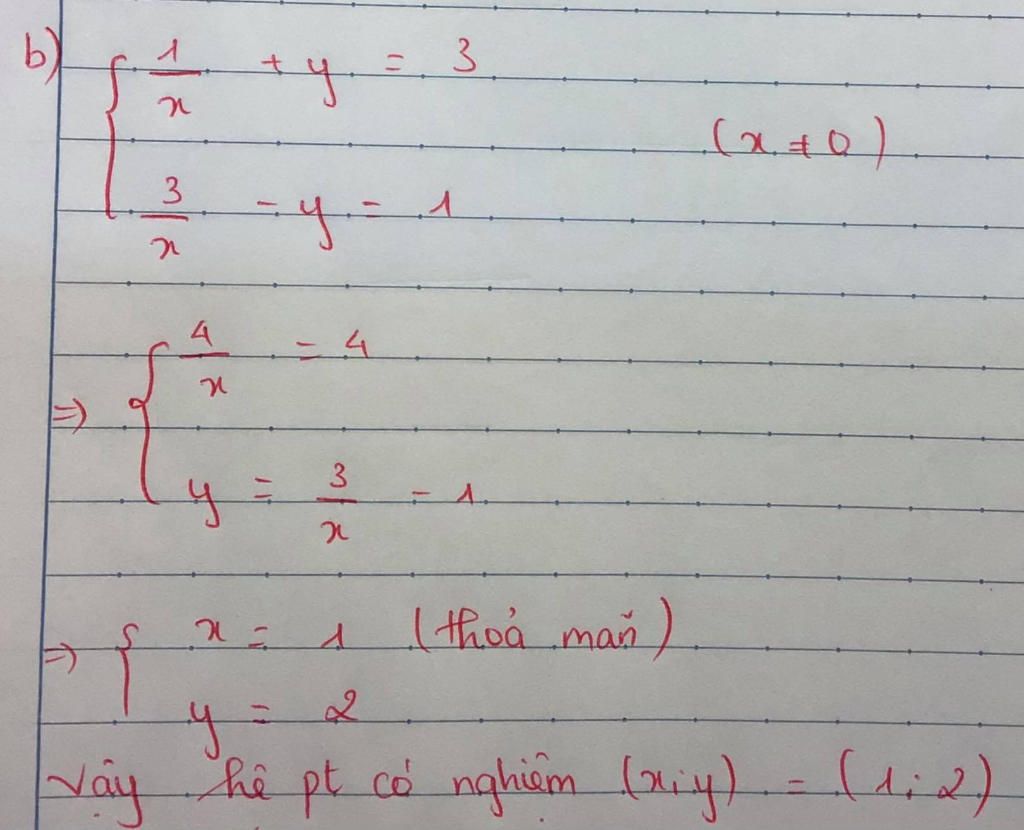 b) { 1/x + y = 3
(x ≠ 0)
3/x - y = 1
=> { 4/x = 4
y = 3/x - 1
=> { x = 1 (thoả mãn)
y = 2
Vậy hệ pt có nghiệm (x; y) = (1; 2)